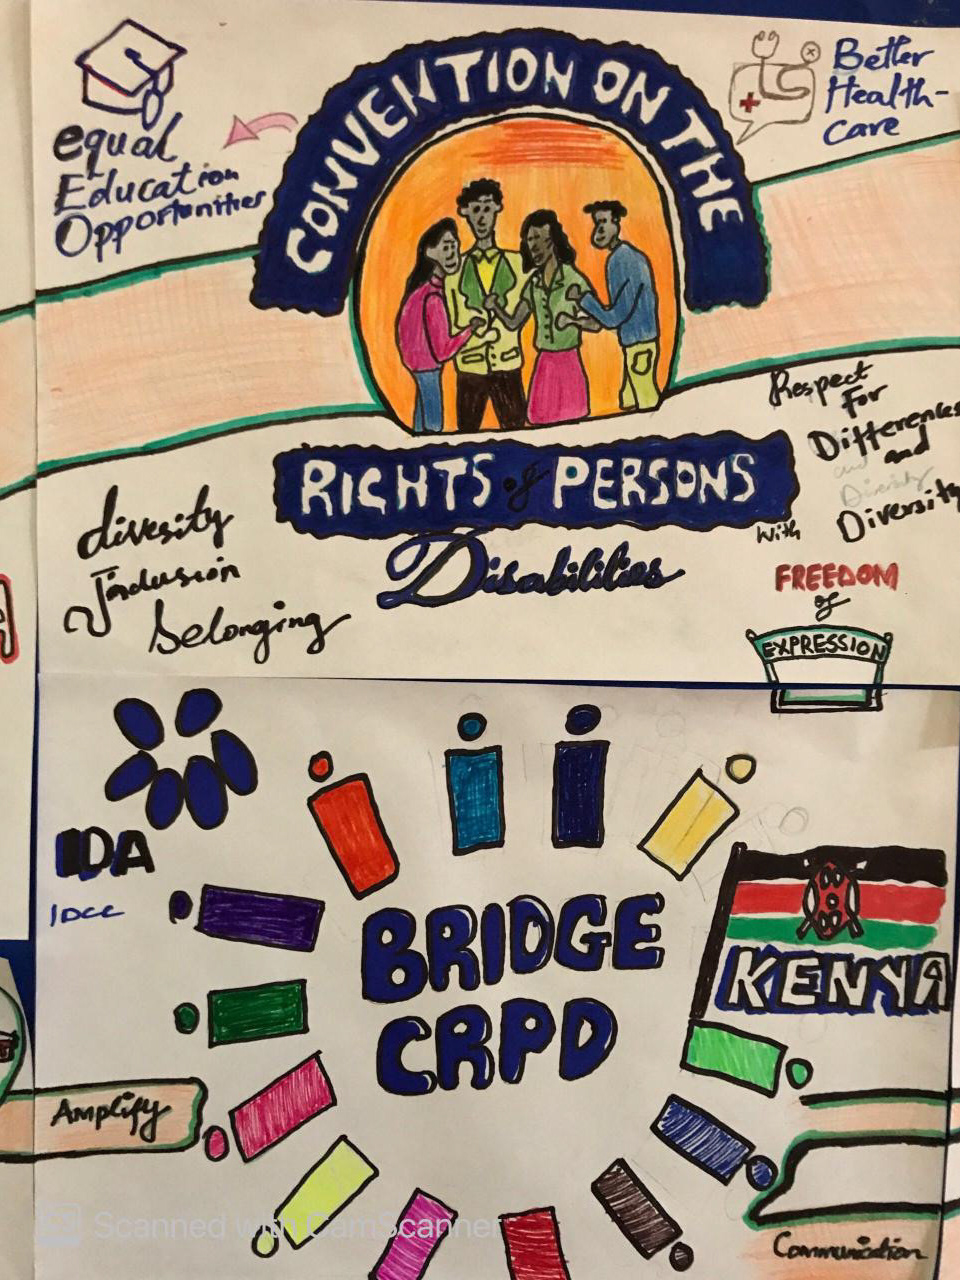 equal
Education
Opportunities
CONVENTION ON THE
Better
Health-
care
RIGHTS of PERSONS
with
Disabilities
Respect
For
Differences
and
and
Diversity
Diversity
diversity
Inclusion
belonging
FREEDOM
of
EXPRESSION
IDA
IDCC
BRIDGE
CRPD
KENYA
Amplify
Communication
Scanned with CamScanner